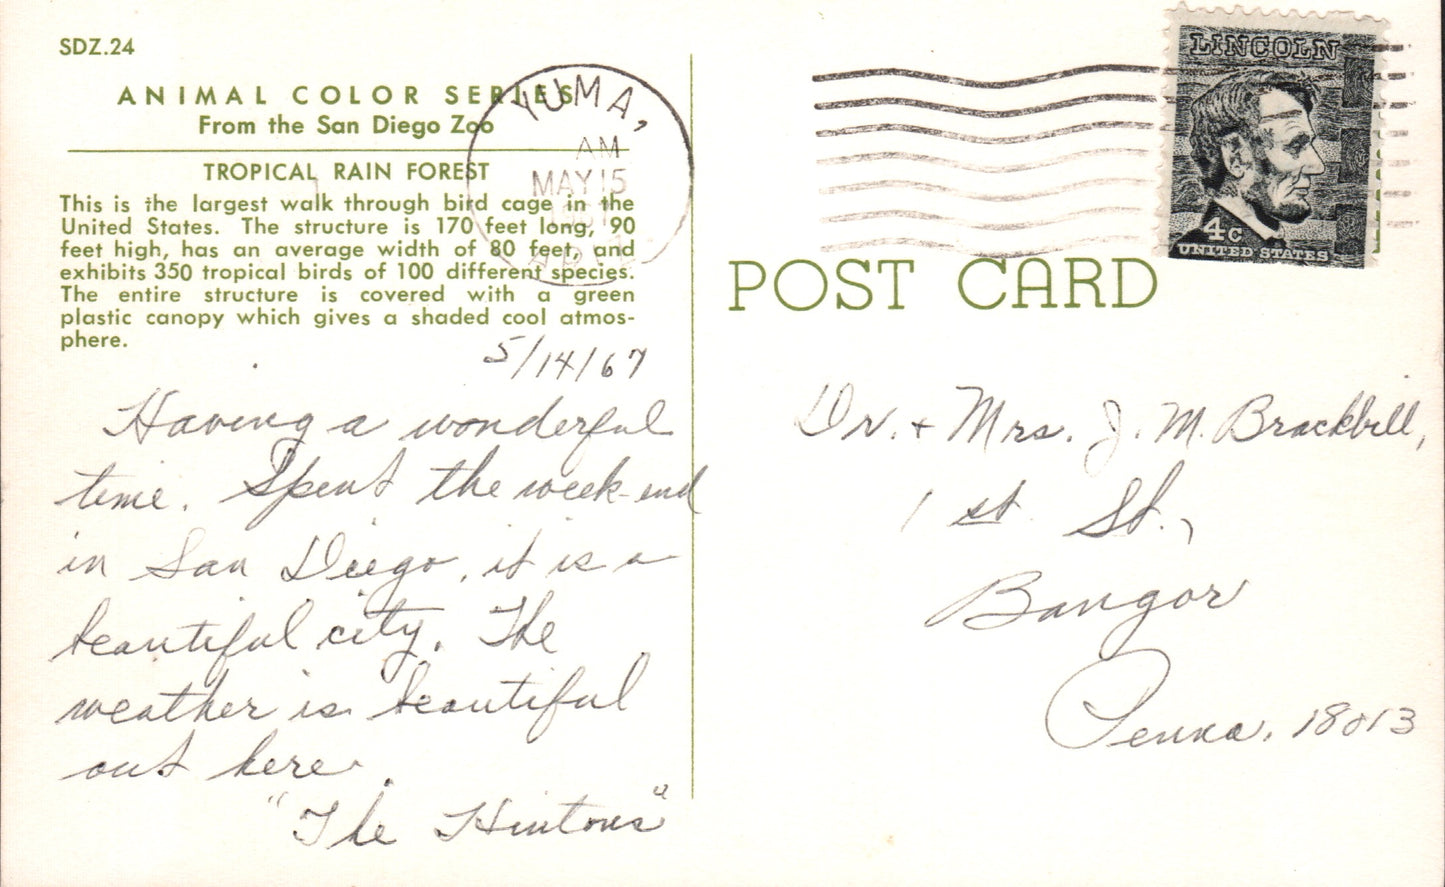 SDZ.24
ANIMAL COLOR SERIES
From the San Diego Zoo
TROPICAL RAIN FOREST
This is the largest walk through bird cage in the
United States. The structure is 170 feet long, 90
feet high, has an average width of 80 feet, and
exhibits 350 tropical birds of 100 different species.
The entire structure is covered with a green
plastic canopy which gives a shaded cool atmos-
phere.
5/14/67
Having a wonderful
time. Spent the week-end
in San Diego, it is a
beautiful city. The
weather is beautiful
out here.
"The Hintons"
YUMA,
AM
MAY 15
1967
ARIZ
LINCOLN
4c
UNITED STATES
POST CARD
Dr. + Mrs. J. M. Brackbill,
1 st. St.,
Bangor
Penna. 18013